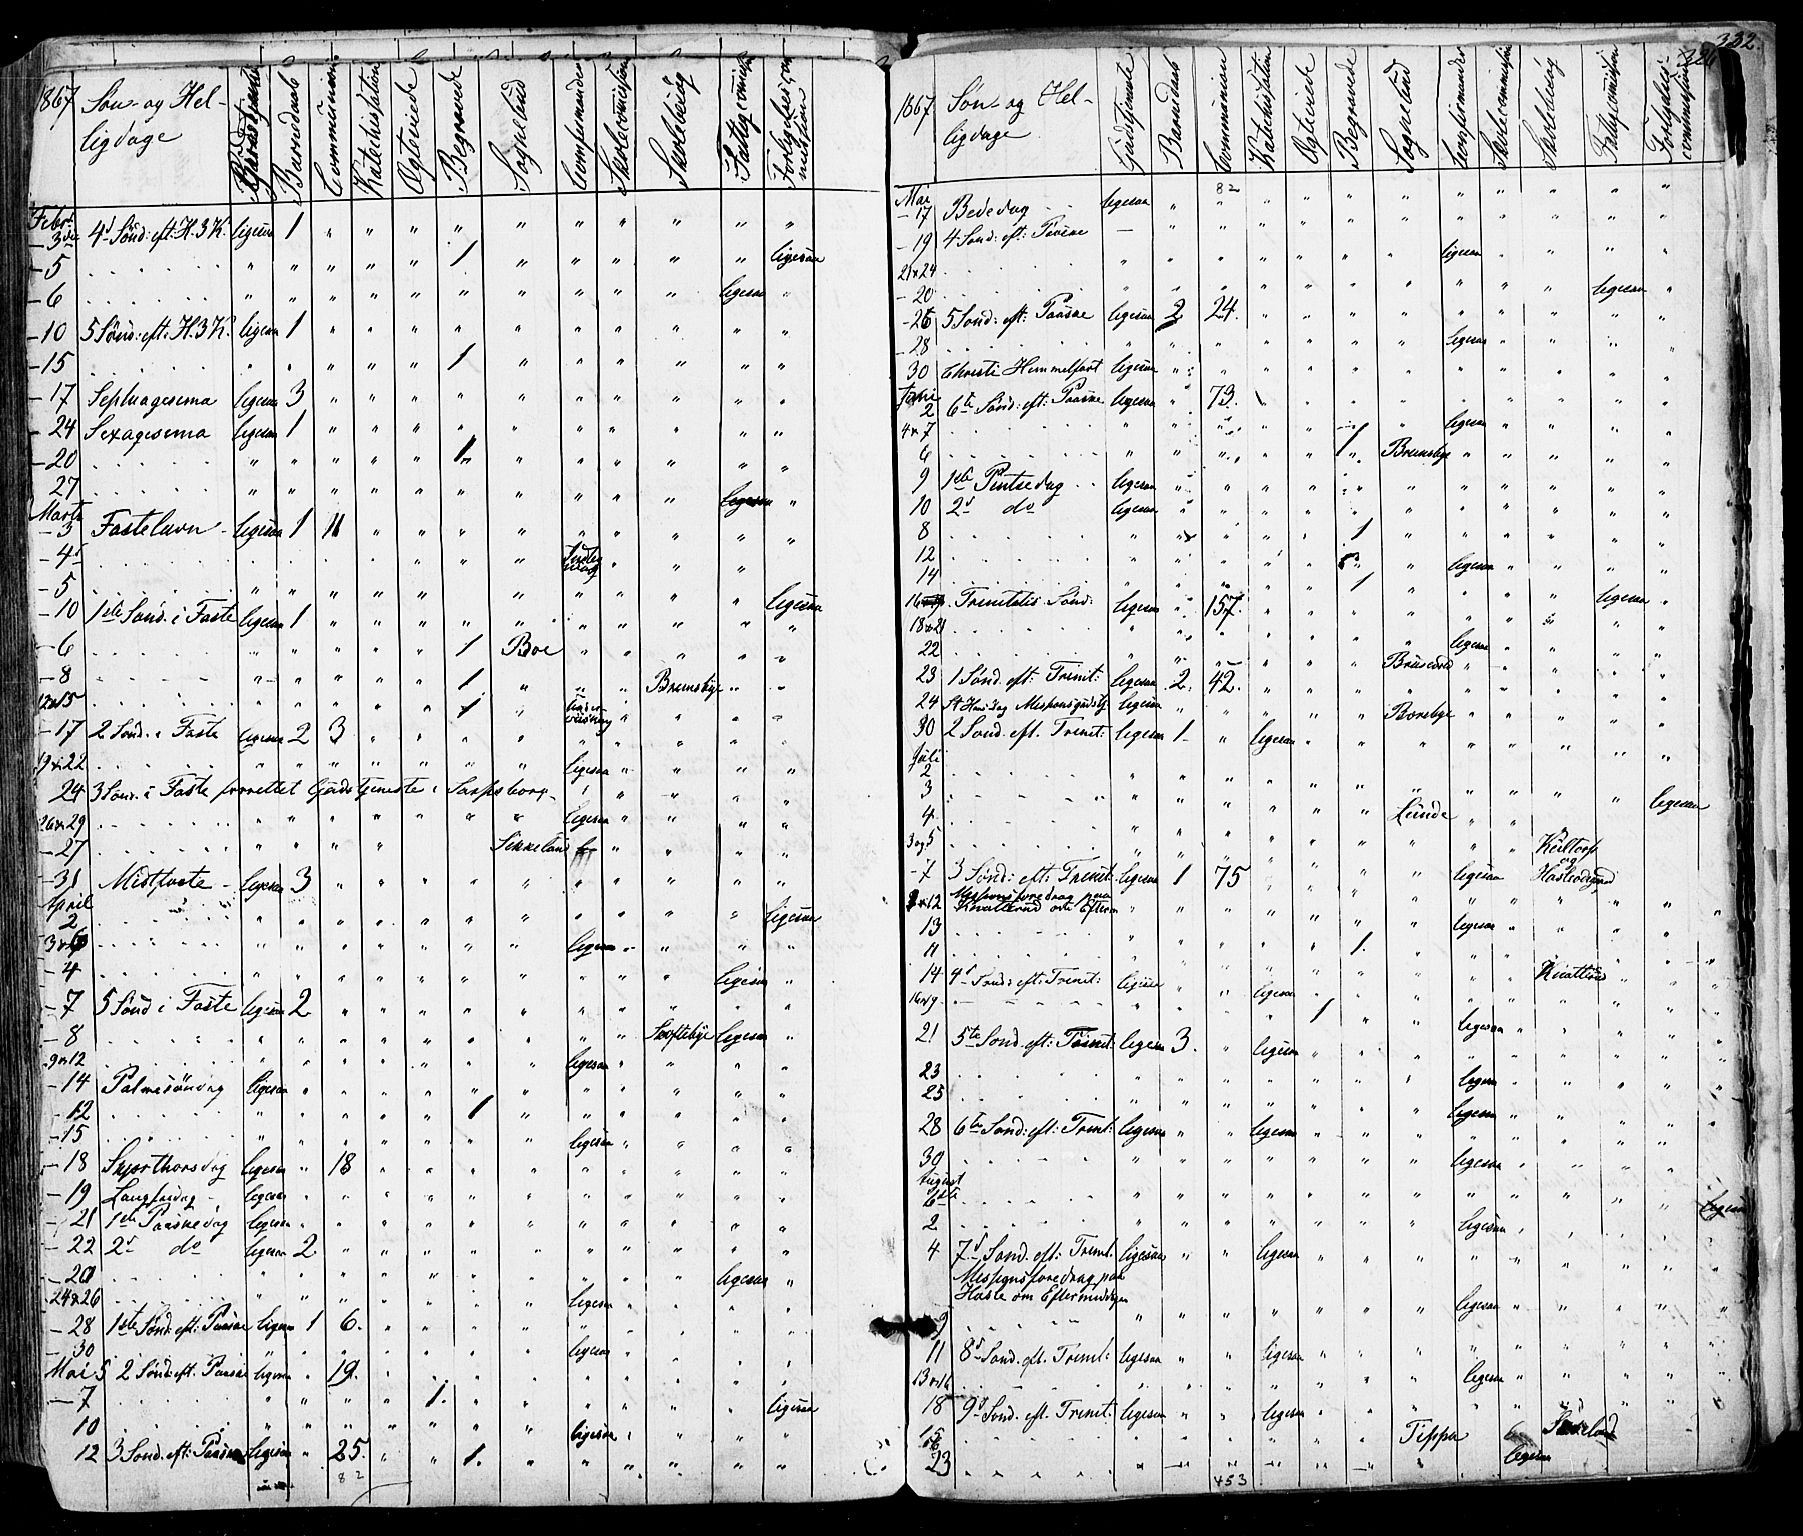 332.
1867 Søn- og Hel-
ligdage
Barnedaab Communion Katechisation Ægteviede Begravede Sognebud Confirmander Skolecommission Skolebesøg Fattigcommission Forligelsescommission
Febr.
-3die 4de Sønd: eft: H.3K. ligesaa 1
-5 1 ligesaa
-6 ligesaa
-10 5 Sønd: eft: H.3K. ligesaa 1
-15 1
-17 Septuagesima ligesaa 3
-24 Sexagesima ligesaa 1
-20 1
-27 ligesaa
Marts
-3 Fastelavn - ligesaa 1 11
-4
-5 ligesaa
-10 1ste Sønd. i Faste ligesaa 1
-6 1 Boe
-8 1 Brunsbye
12 & 15 1
-17 2 Sønd. i Faste ligesaa 2 3
19 & 22 ligesaa
24 3 Sønd. i Faste forrettet Gudstjeneste i Sarpsborg
26 & 29 ligesaa
-27 Sikkeland
-31 Midfaste - ligesaa 3
April
2 ligesaa
3 & 6 ligesaa
-4 ligesaa
-7 5 Sønd i Faste ligesaa 2
-8 Tveftebye ligesaa
9 & 12 ligesaa
-14 Palmesøndag ligesaa
-12 1
-15 ligesaa
-18 Skjærthorsdag ligesaa 18
-19 Langfredag - ligesaa
-21 1ste Paaskedag ligesaa
-22 2d do ligesaa 2
-20 ligesaa
24 & 26 ligesaa
-28 1ste Sønd: eft: Paaske ligesaa 1 6.
-30 ligesaa
Mai 5 2 Sønd: eft. Paaske ligesaa 19.
-7 1. ligesaa
10 ligesaa
12 3 Sønd. eft: Paaske ligesaa 25. 1.
82
1867 Søn- og Hel-
ligdage
Gudstjeneste Barnedaab Communion Katechisation Ægteviede Begravede Sognebud Confirmander Skolecommission Skolebesøg Fattigcommission Forligelses
commission
82
Mai
-17 Bededag ligesaa
-19 4 Sønd: eft: Paaske —
21 & 24 ligesaa
-20 ligesaa
-26 5 Sønd: eft: Paaske ligesaa 2 24.
-28 ligesaa
30 Christi Himmelfart ligesaa
Juni
2 6te Sønd: eft: Paaske ligesaa 73.
4 & 7 ligesaa
6 1 Brunsbye
9 1ste Pintsedag ligesaa
10 2d do ligesaa
8 1
12 ligesaa
14 1
16 Trinitatis Sønd: ligesaa 157. ligesaa
18 & 21 ligesaa
22
23 1 Sønd. eft: Trinit: ligesaa 2. 42.
24 St Hansdag Missionsgudstj. ligesaa Borebye
30 2 Sønd. eft. Trinit: ligesaa 1 - ligesaa
Juli
2
3 ligesaa
4 Lunde
3 og 5
-7 3 Sønd: eft: Trinit: ligesaa 1 75 ligesaa
9 & 12 Missionsforedrag paa
Knatterud om Efterm
13 ligesaa
11 1.
14 4d Sønd: eft: Trinit: ligesaa ligesaa Knatterud
16 & 19 1
21 5te Sønd. eft: Trinit: ligesaa 3. ligesaa ligesaa
23 ligesaa
25 ligesaa
28 6te Sønd: eft: Trinit: ligesaa ligesaa
30 ligesaa
August
6te ligesaa
2 ligesaa
4 7d Sønd. eft: Trinit. ligesaa ligesaa
Missionsforedrag paa
Hasle om Eftermiddagen
9 ligesaa
11 8d Sønd. eft. Trinit: ligesaa ligesaa
13 & 16 ligesaa
18 9d Sønd. eft. Trinit: ligesaa ligesaa
15 Tippa
16
23 ligesaa
453